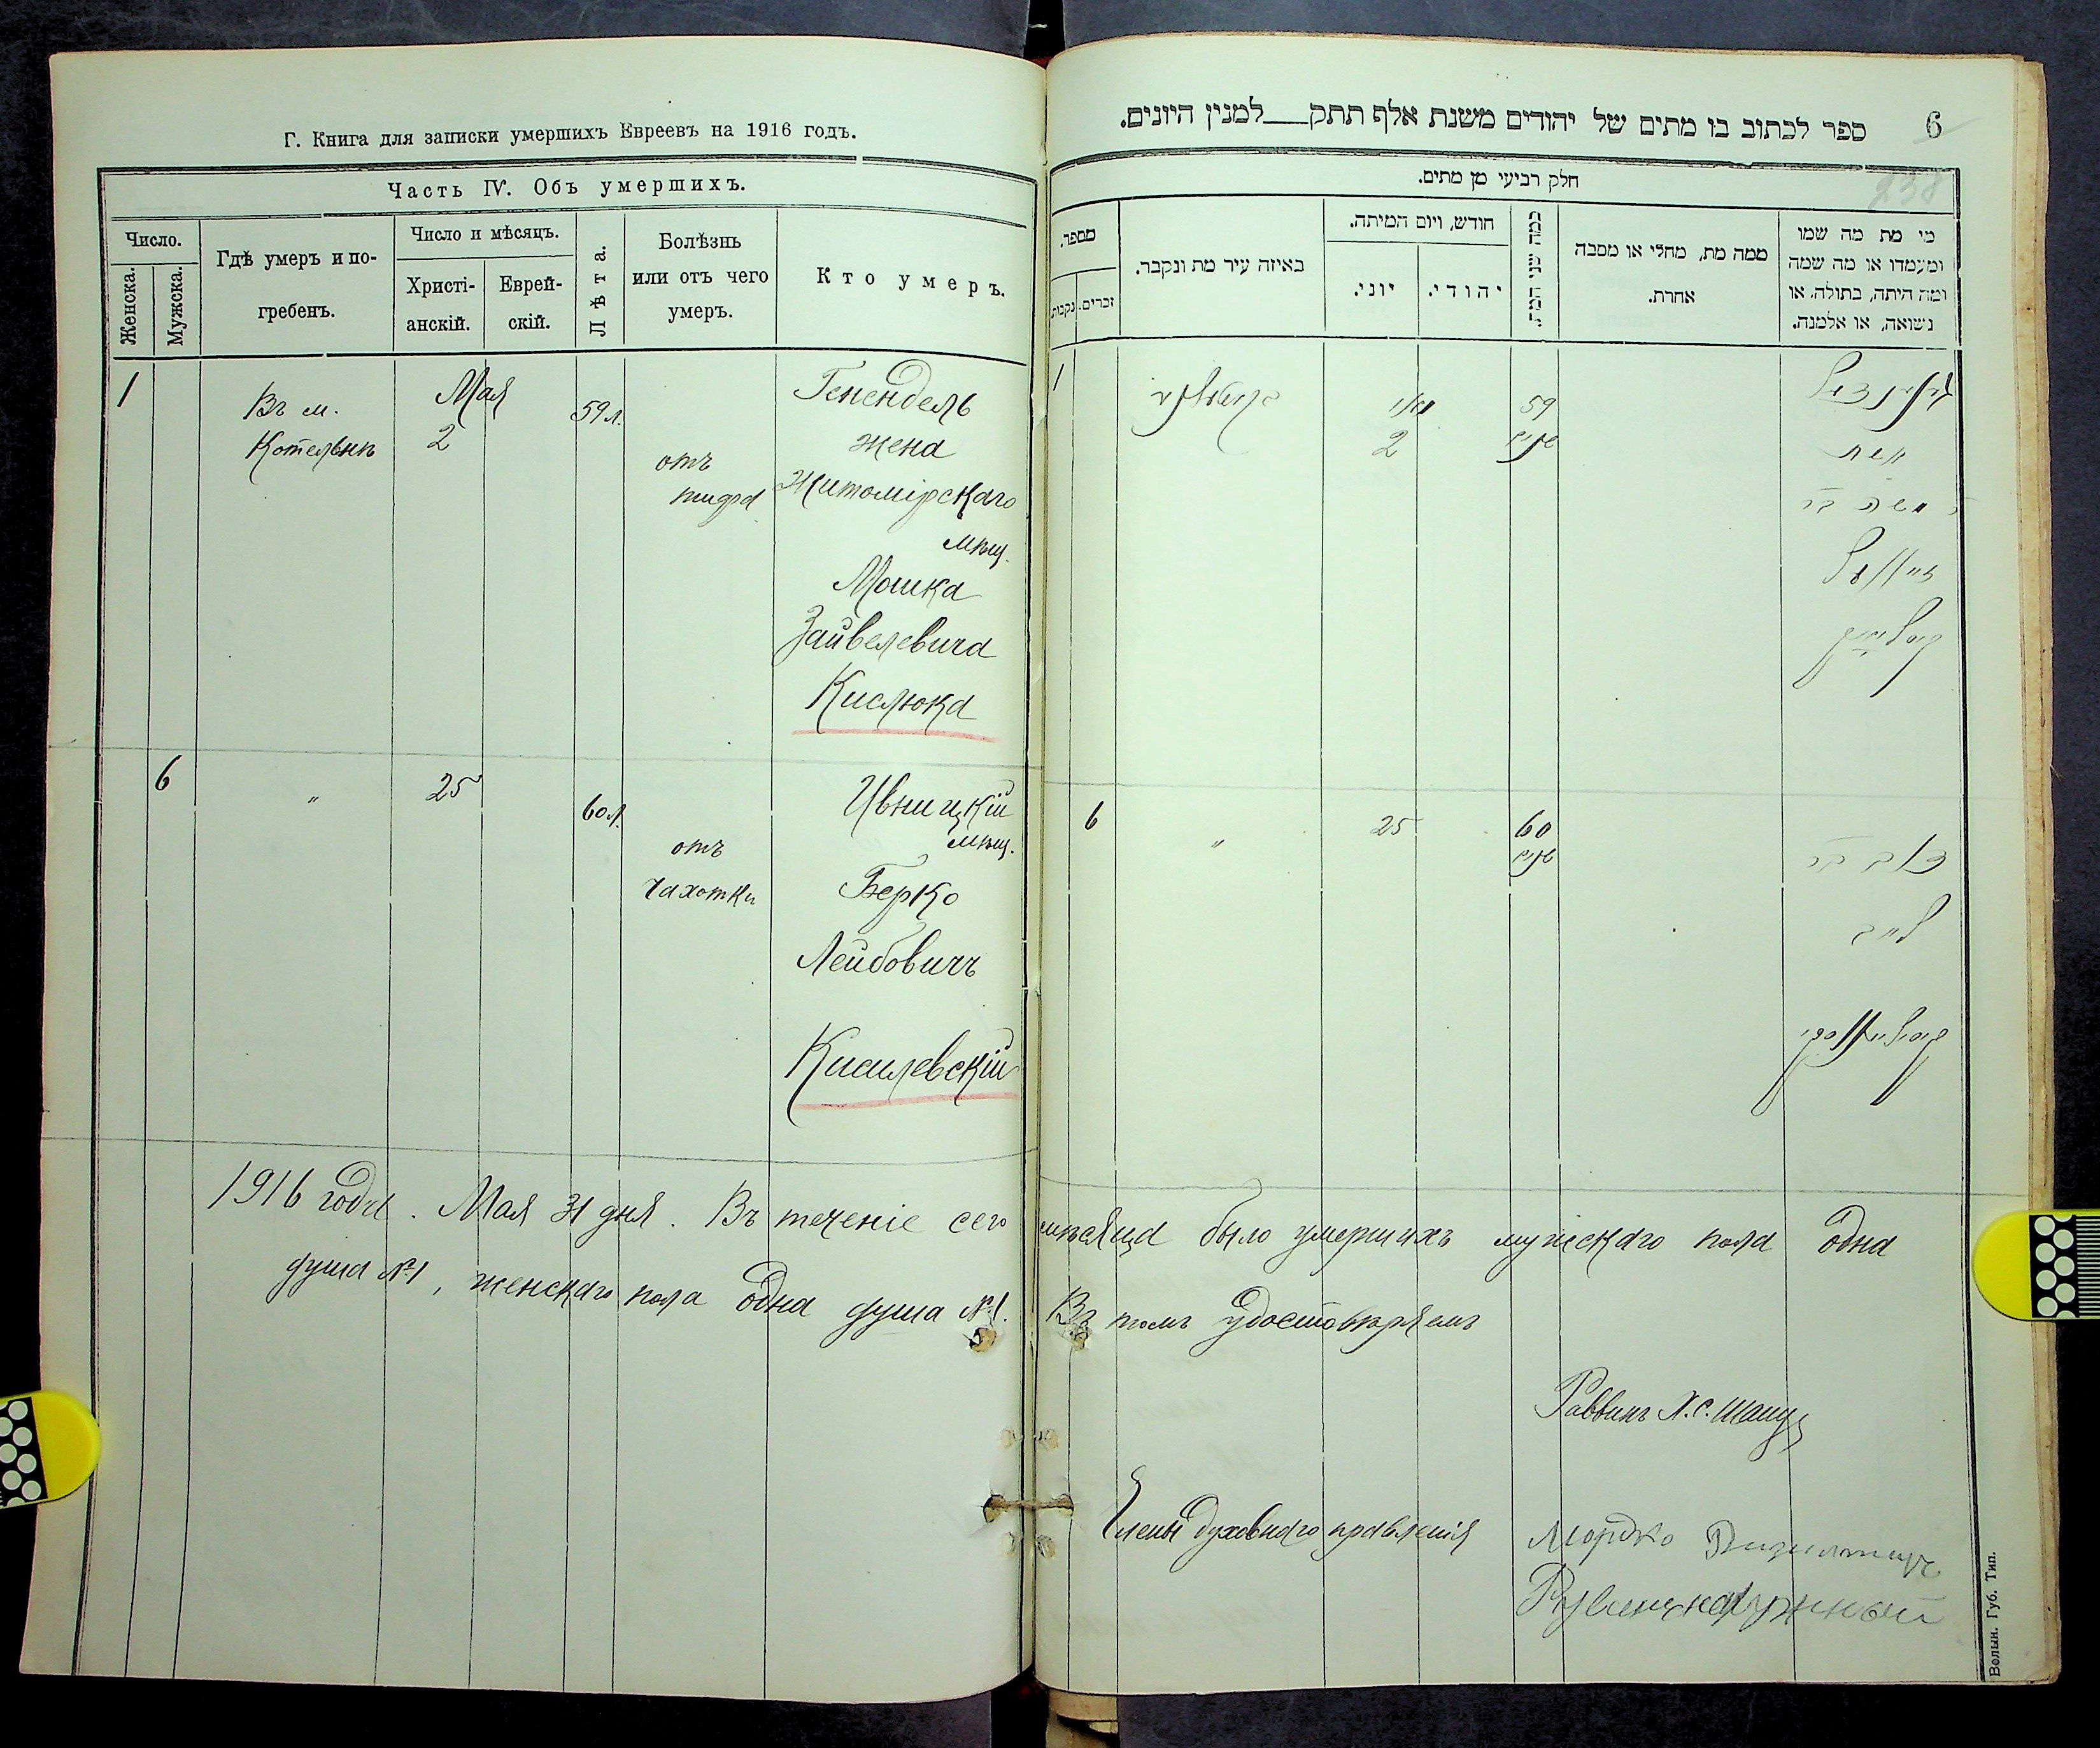 Г. Книга для записки умершихъ Евреевъ на 1916 годъ.
Часть IV. Объ умершихъ.
Число.
Женска.
Мужска.
Гдѣ умеръ и по-
гребенъ.
Число и мѣсяцъ.
Христі-
анскій.
Еврей-
скій.
Лѣта.
Болѣзнь
или отъ чего
умеръ.
Кто умеръ.
1
Въ м.
Котельнѣ
Мая
2
59 л.
отъ
тифа
Генендель
жена
Житомірскаго
мѣщ.
Мошка
Зайвелевича
Кислюка
6
"
25
60 л.
отъ
чахотки
Ивницкій
мѣщ.
Берко
Лейбовичъ
Кисилевскій
1916 года. Мая 31 дня. Въ теченіе сего мѣсяца было умершихъ мужскаго пола одна
душа №1, женскаго пола одна душа №1. Въ томъ удостовѣряемъ
6
238
ספר לכתוב בו מתים של יהודים משנת אלף תתק___למנין היונים.
חלק רביעי מן מתים.
מי מת מה שמו
ומעמדו או מה שמה
ומה היתה, בתולה, או
נשואה, או אלמנה.
ממה מת, מחלי או מסבה
אחרת.
כמה שני המת.
חודש, ויום המיתה.
יהודי.
יוני.
באיזה עיר מת ונקבר.
מספר.
זכרים.
נקבות
1
מאי
2
59
שנים
אשת
ר משה בר
זיוועל
6
"
25
60
שנים
דוב בר
לייב
Раввинъ
Члены духовнаго правленія
Мордко
Волын. Губ. Тип.